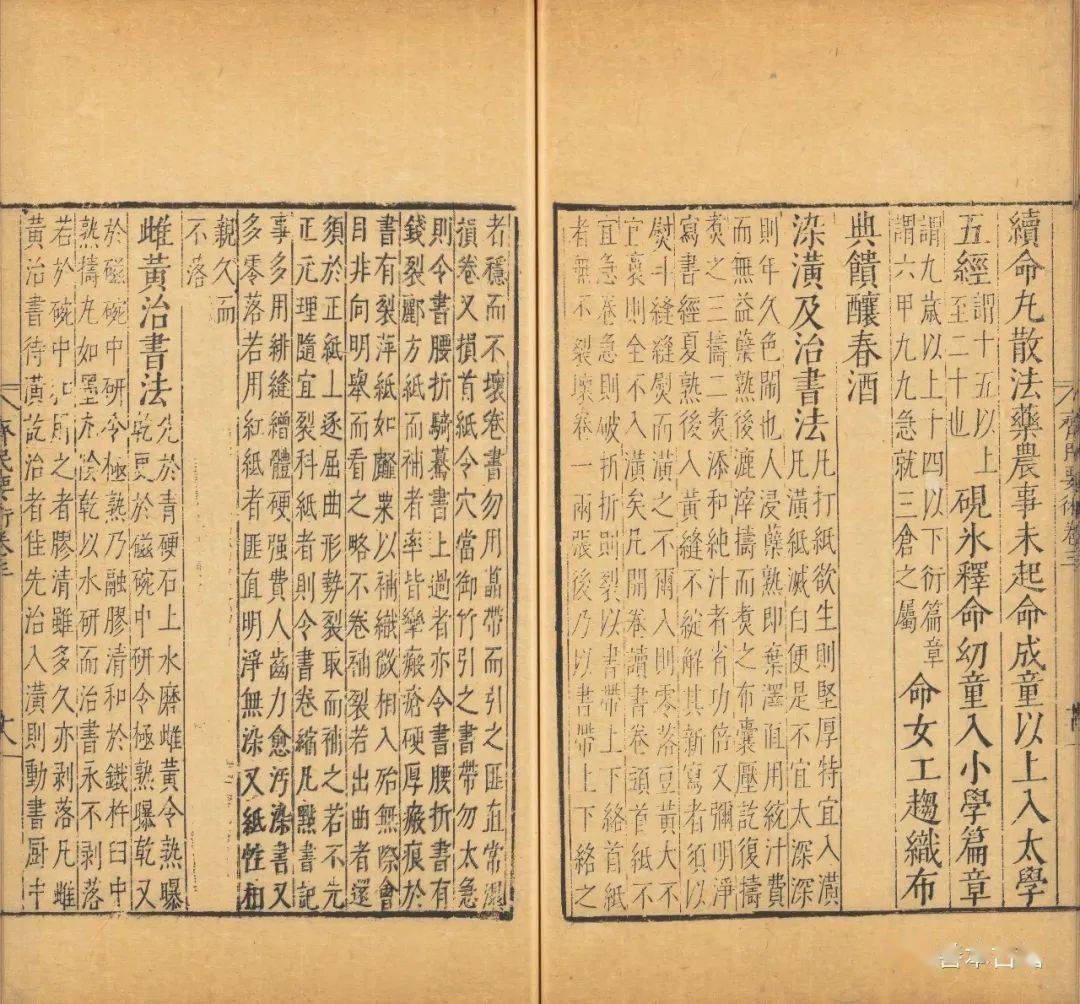 續命丸散法藥農事未起命成童以上入太學
五經謂十五以上
至二十也硯氷釋命幼童入小學篇章
謂九歲以上十四以下衍篇章
謂六甲九九急就三倉之屬命女工趨織布
典饋釀春酒
染潢及治書法凡打紙欲生則堅厚特宜入潢
凡潢紙滅白便是不宜太深深
則年久色闇也人浸蘗熟即棄滓直用純汁費
而無益蘗熟後漉滓擣而煑之布囊壓訖復擣
煑之三擣三煑添和純汁者省功倍又彌明淨
寫書經夏熟後入黃縫不綻解其新寫者須以
熨斗縫縫熨而潢之不爾入則零落豆黃大不
宜裛則全不入潢矣凡開卷讀書卷頭首紙不
宜急卷急則破折折則裂以書帶上下絡首紙
者無不裂壞卷一兩張後乃以書帶上下絡之
者穩而不壞卷書勿用鬲帶而引之匪直帶濕
損卷又損首紙令穴當御竹引之書帶勿太急
則令書腰折騎驀書上過者亦令書腰折書有
錢裂郦方紙而補者率皆攣瘢瘡硬厚瘢痕於
書有裂薄紙如䪥葉以補織微相入殆無際會
目非向明舉而看之略不卷補裂若出曲者還
須於正紙上逐屈曲形勢裂取而補之若不先
正元理隨宜裂科紙者則令書卷縮凡點書記
事多用緋縫繒體硬强費人齒力愈汚染書又
多零落若用紅紙者匪直明淨無染又紙性相
親久而
不落
雌黃治書法先於青硬石上水磨雌黃令熟曝
乾更於磁碗中研令極熟曝乾又
於磁碗中研令極熟乃融膠清和於鐵杵臼中
熟擣丸如墨丸陰乾以水研而治書永不剥落
若於碗中和用之者膠清雖多久亦剥落凡雌
黃治書待潢訖治者佳先治入潢則動書厨中
齊民要術卷三